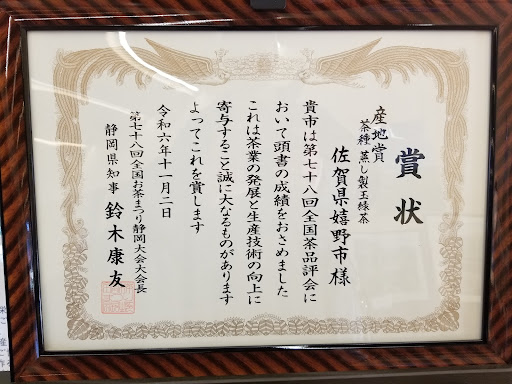 賞状
産地賞
茶種 蒸し製玉緑茶
佐賀県嬉野市様
貴市は第七十八回全国茶品評会に
おいて頭書の成績をおさめました
これは茶業の発展と生産技術の向上に
寄与すること誠に大なるものがあります
よってこれを賞します
令和六年十一月二日
第七十八回全国お茶まつり静岡大会大会長
静岡県知事 鈴木康友